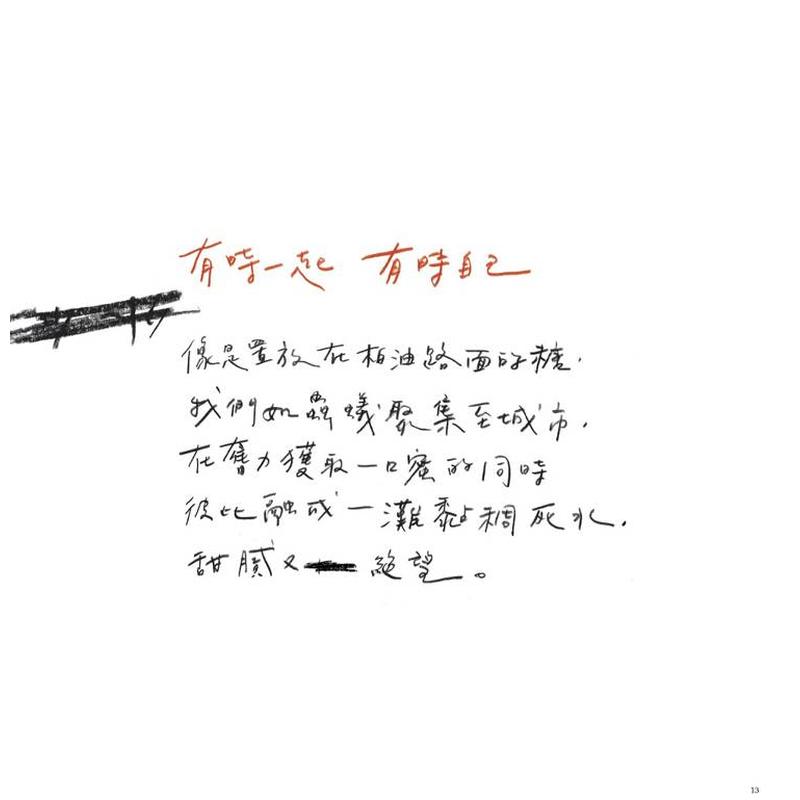 有時一起 有時自己
像是置放在柏油路面的糖，
我們如蟲蟻聚集至城市，
在奮力獲取一口蜜的同時
彼此融成一灘黏稠死水，
甜膩又絕望。
13